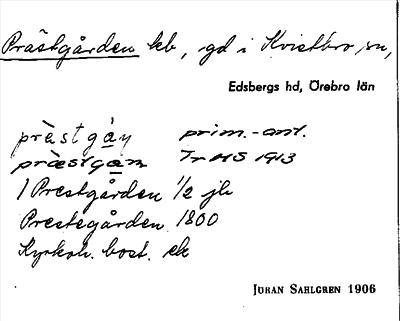 Prästgården kb, gd i Kvistbro sn,
Edsbergs hd, Örebro län
prästgàn prim.-ant.
prästgan Tr HS 1913
1 Prestgården 1/2 jb
Prestegården 1800
Kyrkoh. bost. ek
JÖRAN SAHLGREN 1906